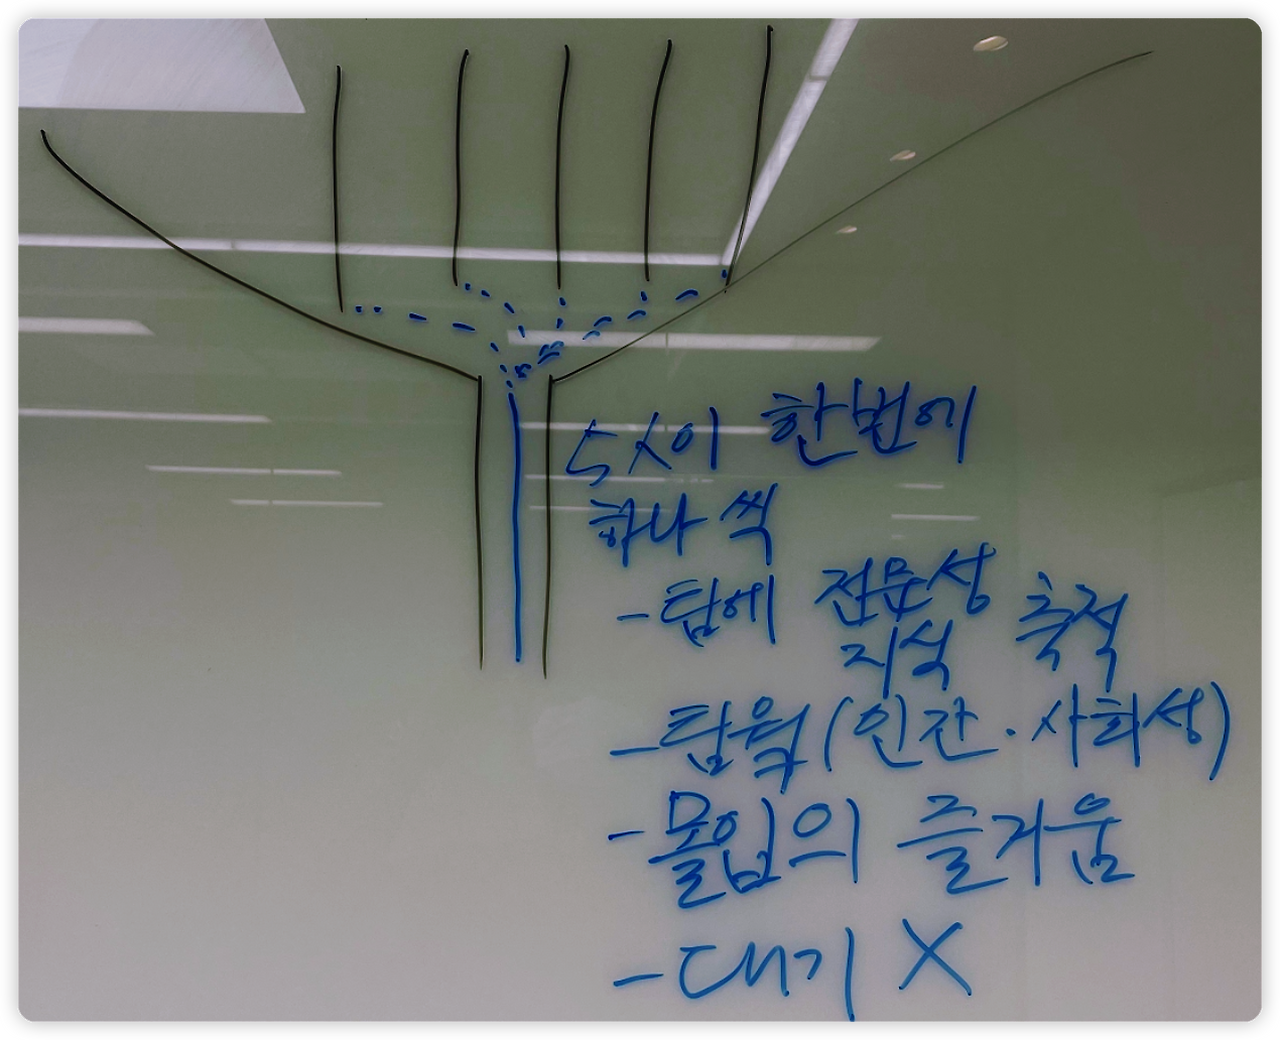 5人이 한번에
하나 씩
-팀에 전문성
지식 축적
-팀웍(인간·사회성)
-몰입의 즐거움
-대기 X